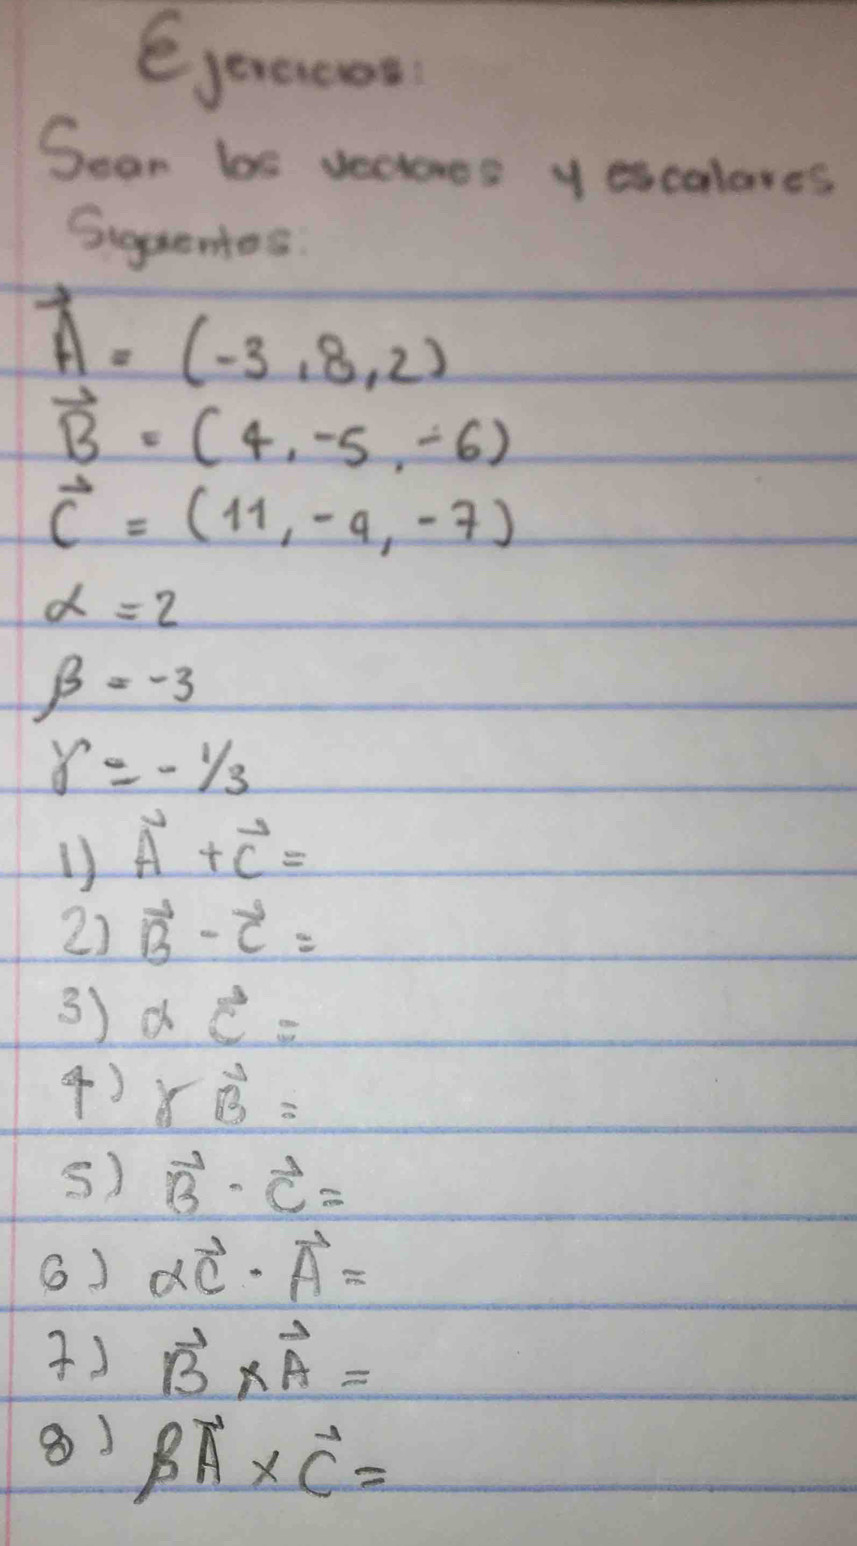 Ejercicios:
Sean los vectores y escalares
Siguientes:
A⃗ = (-3, 8, 2)
B⃗ = (4, -5, -6)
C⃗ = (11, -9, -7)
α = 2
β = -3
γ = - 1/3
1) A⃗ + C⃗ =
2) B⃗ - C⃗ =
3) α C⃗ =
4) γ B⃗ =
5) B⃗ · C⃗ =
6) αC⃗ · A⃗ =
7) B⃗ × A⃗ =
8) βA⃗ × C⃗ =